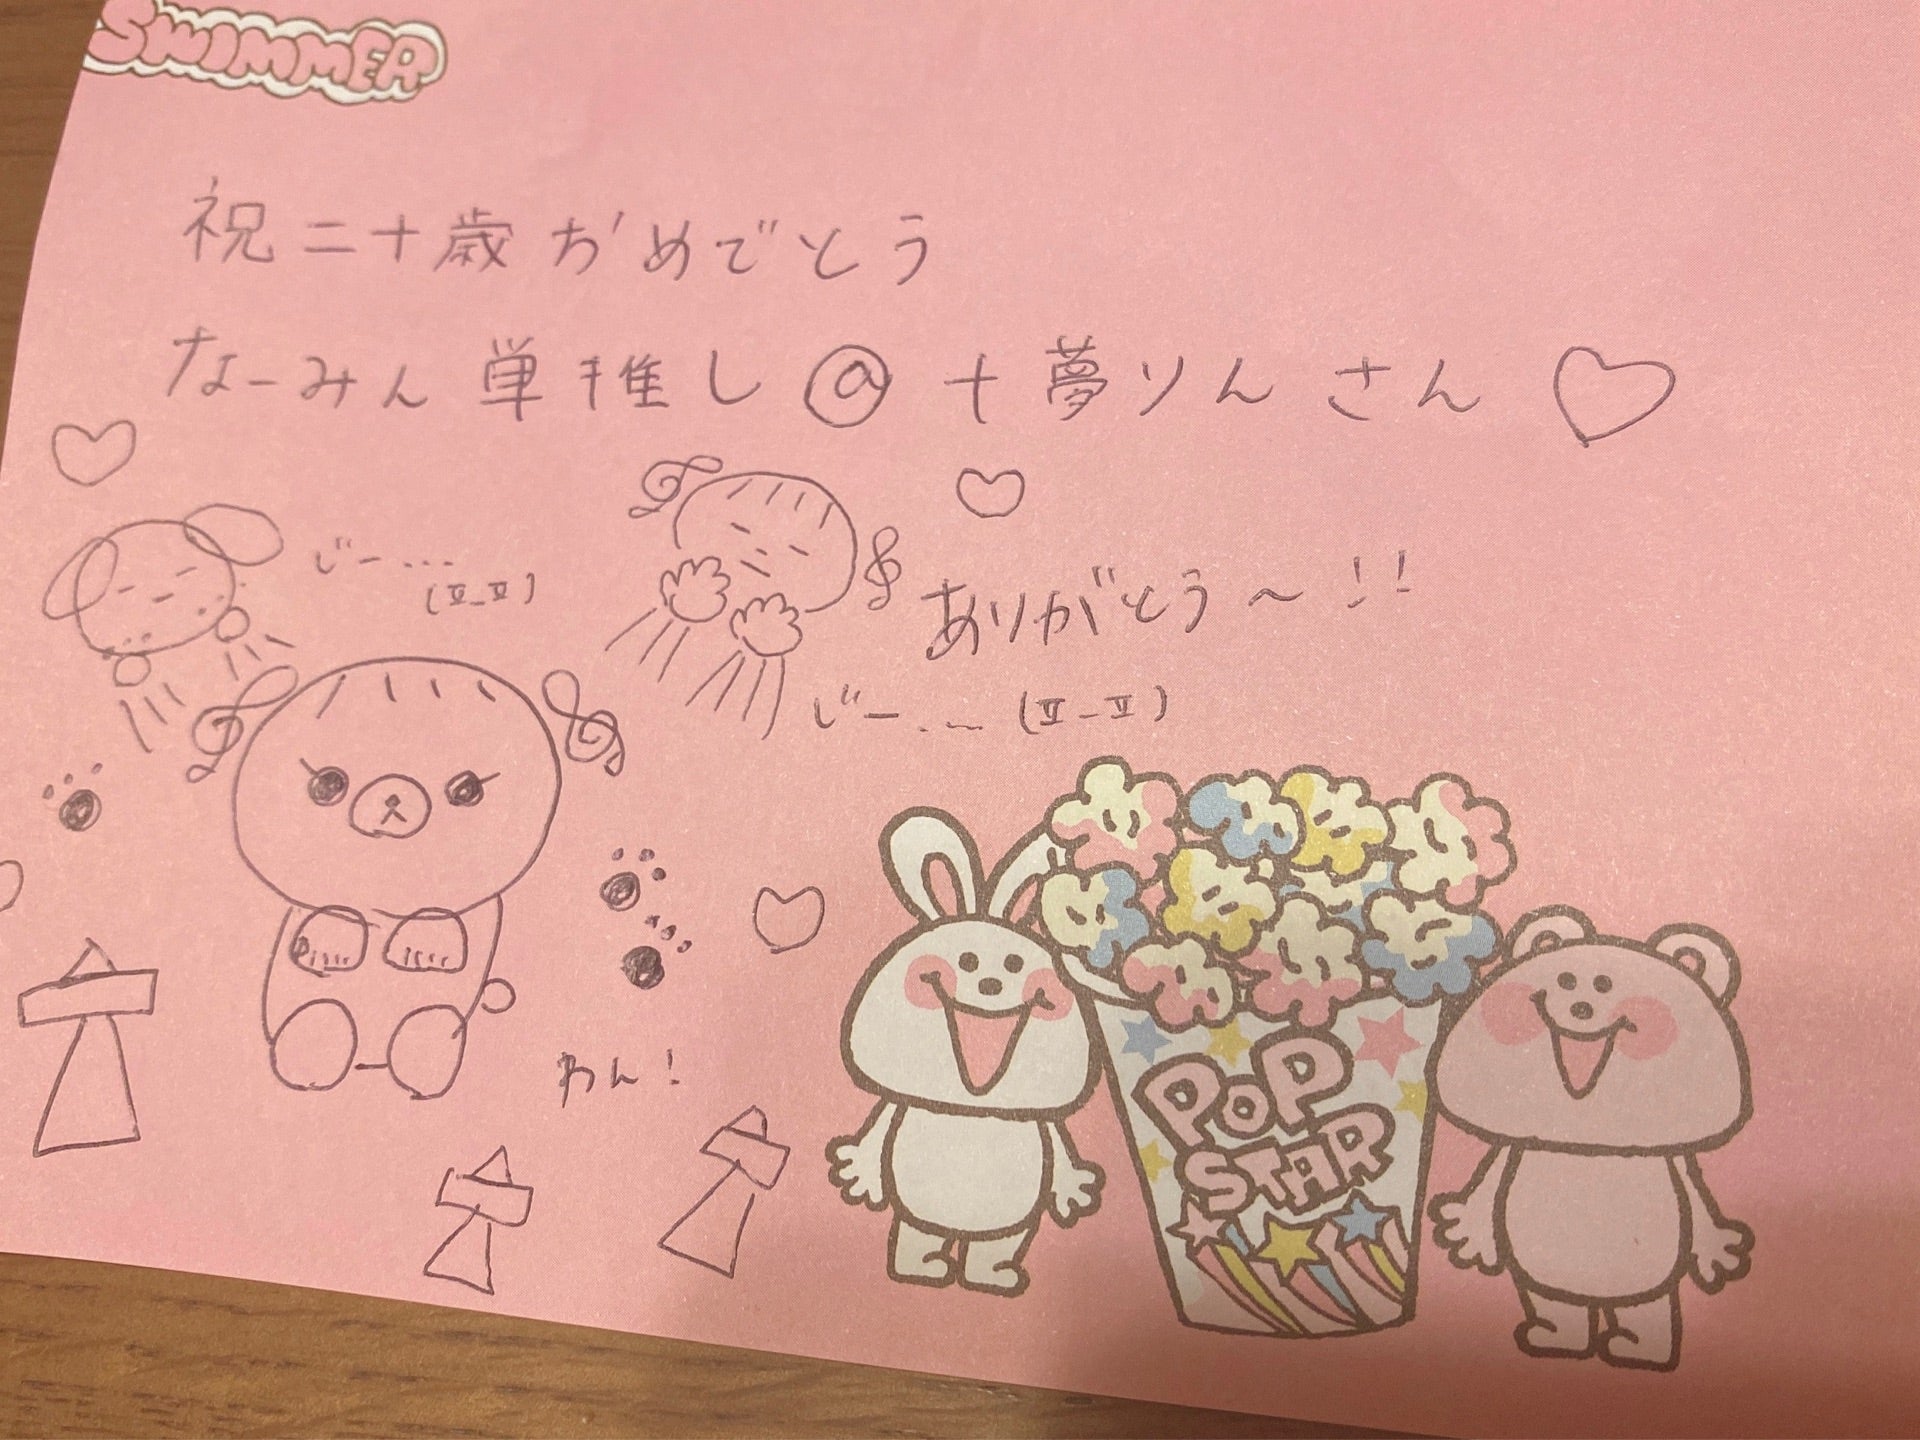 SWIMMER
祝二十歳おめでとう
なーみん単推し@十夢りんさん♡
じー…
(ㅍ_ㅍ)
ありがとう～!!
じー… (ㅍ_ㅍ)
わん!
POP
STAR